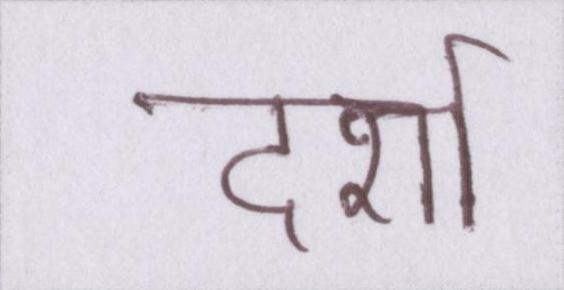 दर्शा